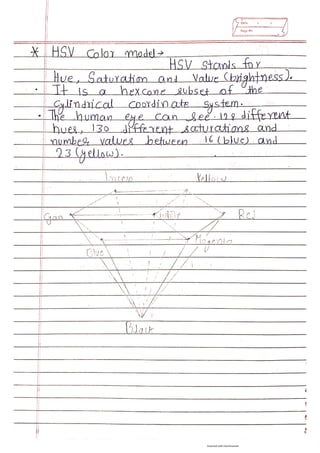 Date :
Page No.
* HSV Color model →
HSV stands for
Hue, Saturation and Value (brightness).
• It is a hexcone subset of the
cylindrical coordinate system.
• The human eye can see 128 different
hues, 130 different saturations and
number values between 16 (blue) and
23 (yellow).
Green Yellow
Cyan White Red
Blue Magenta
Black
Scanned with CamScanner